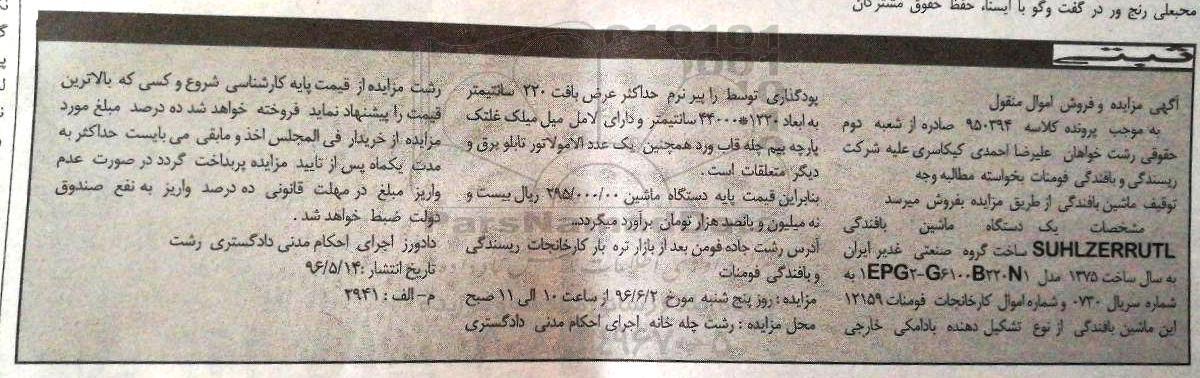 محبعلی رنج ور در گفت وگو با ایسنا، حفظ حقوق مشترکان
ثبتی
آگهی مزایده و فروش اموال منقول
به موجب پرونده کلاسه ۹۵۰۳۹۴ صادره از شعبه دوم
حقوقی رشت خواهان علیرضا احمدی کیکاسری علیه شرکت
ریسندگی و بافندگی فومنات بخواسته مطالبه وجه
توقیف ماشین بافندگی از طریق مزایده بفروش میرسد
مشخصات یک دستگاه ماشین بافندگی
SUHLZERRUTL ساخت گروه صنعتی غدیر ایران
به سال ساخت ۱۳۷۵ مدل ۱EPG۲-G۶۱۰۰B۲۲۰N۱ به
شماره سریال ۰۷۳۰ و شماره اموال کارخانجات فومنات ۱۲۱۵۹
این ماشین بافندگی از نوع تشکیل دهنده بادامکی خارجی
پودگذاری توسط راپیر نرم حداکثر عرض بافت ۲۲۰ سانتیمتر
به ابعاد ۱۲۳۰*۴۴۰۰۰ سانتیمتر و دارای لامل میل میلک غلتک
پارچه بیم چله قاب ورد همچنین یک عدد الامولاتور تابلو برق و
دیگر متعلقات است.
بنابراین قیمت پایه دستگاه ماشین ۲۹۵/۰۰۰/۰۰ ریال بیست و
نه میلیون و پانصد هزار تومان برآورد میگردد.
آدرس رشت جاده فومن بعد از بازار تره بار کارخانجات ریسندگی
و بافندگی فومنات
مزایده : روز پنج شنبه مورخ ۹۶/۶/۲ از ساعت ۱۰ الی ۱۱ صبح
محل مزایده : رشت چله خانه اجرای احکام مدنی دادگستری
رشت مزایده از قیمت پایه کارشناسی شروع و کسی که بالاترین
قیمت را پیشنهاد نماید فروخته خواهد شد ده درصد مبلغ مورد
مزایده از خریدار فی المجلس اخذ و مابقی می بایست حداکثر به
مدت یکماه پس از تایید مزایده پرداخت گردد در صورت عدم
واریز مبلغ در مهلت قانونی ده درصد واریز به نفع صندوق
دولت ضبط خواهد شد.
دادورز اجرای احکام مدنی دادگستری رشت
تاریخ انتشار :۹۶/۵/۱۴
م- الف : ۲۹۴۱